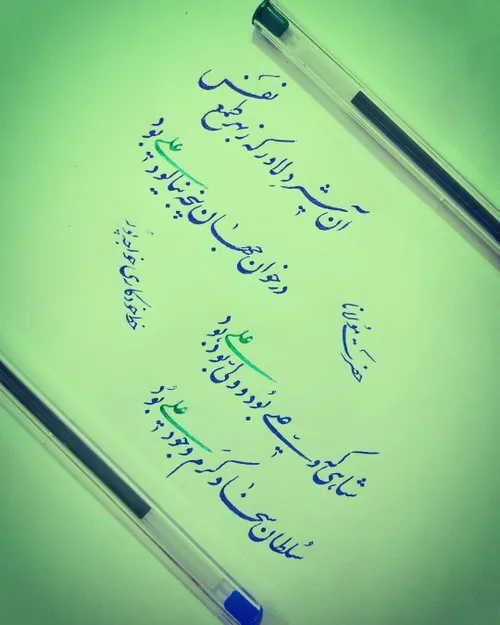 آن شیر دلاور که ز بهر طمع نفس
در خوان جهان پنجه نیالود علی بود
حضرت مولانا
شاهی که وصی بود و ولی بود علی بود
سلطان سخا و کرم و جود علی بود
خط خودکاری خواجه پور